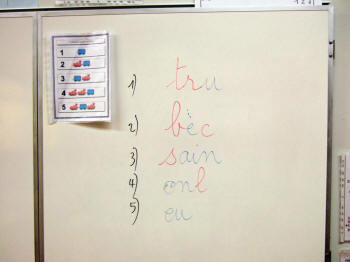 1
2
3
4
5
1) tru
2) bèc
3) sain
4) onl
5) eu